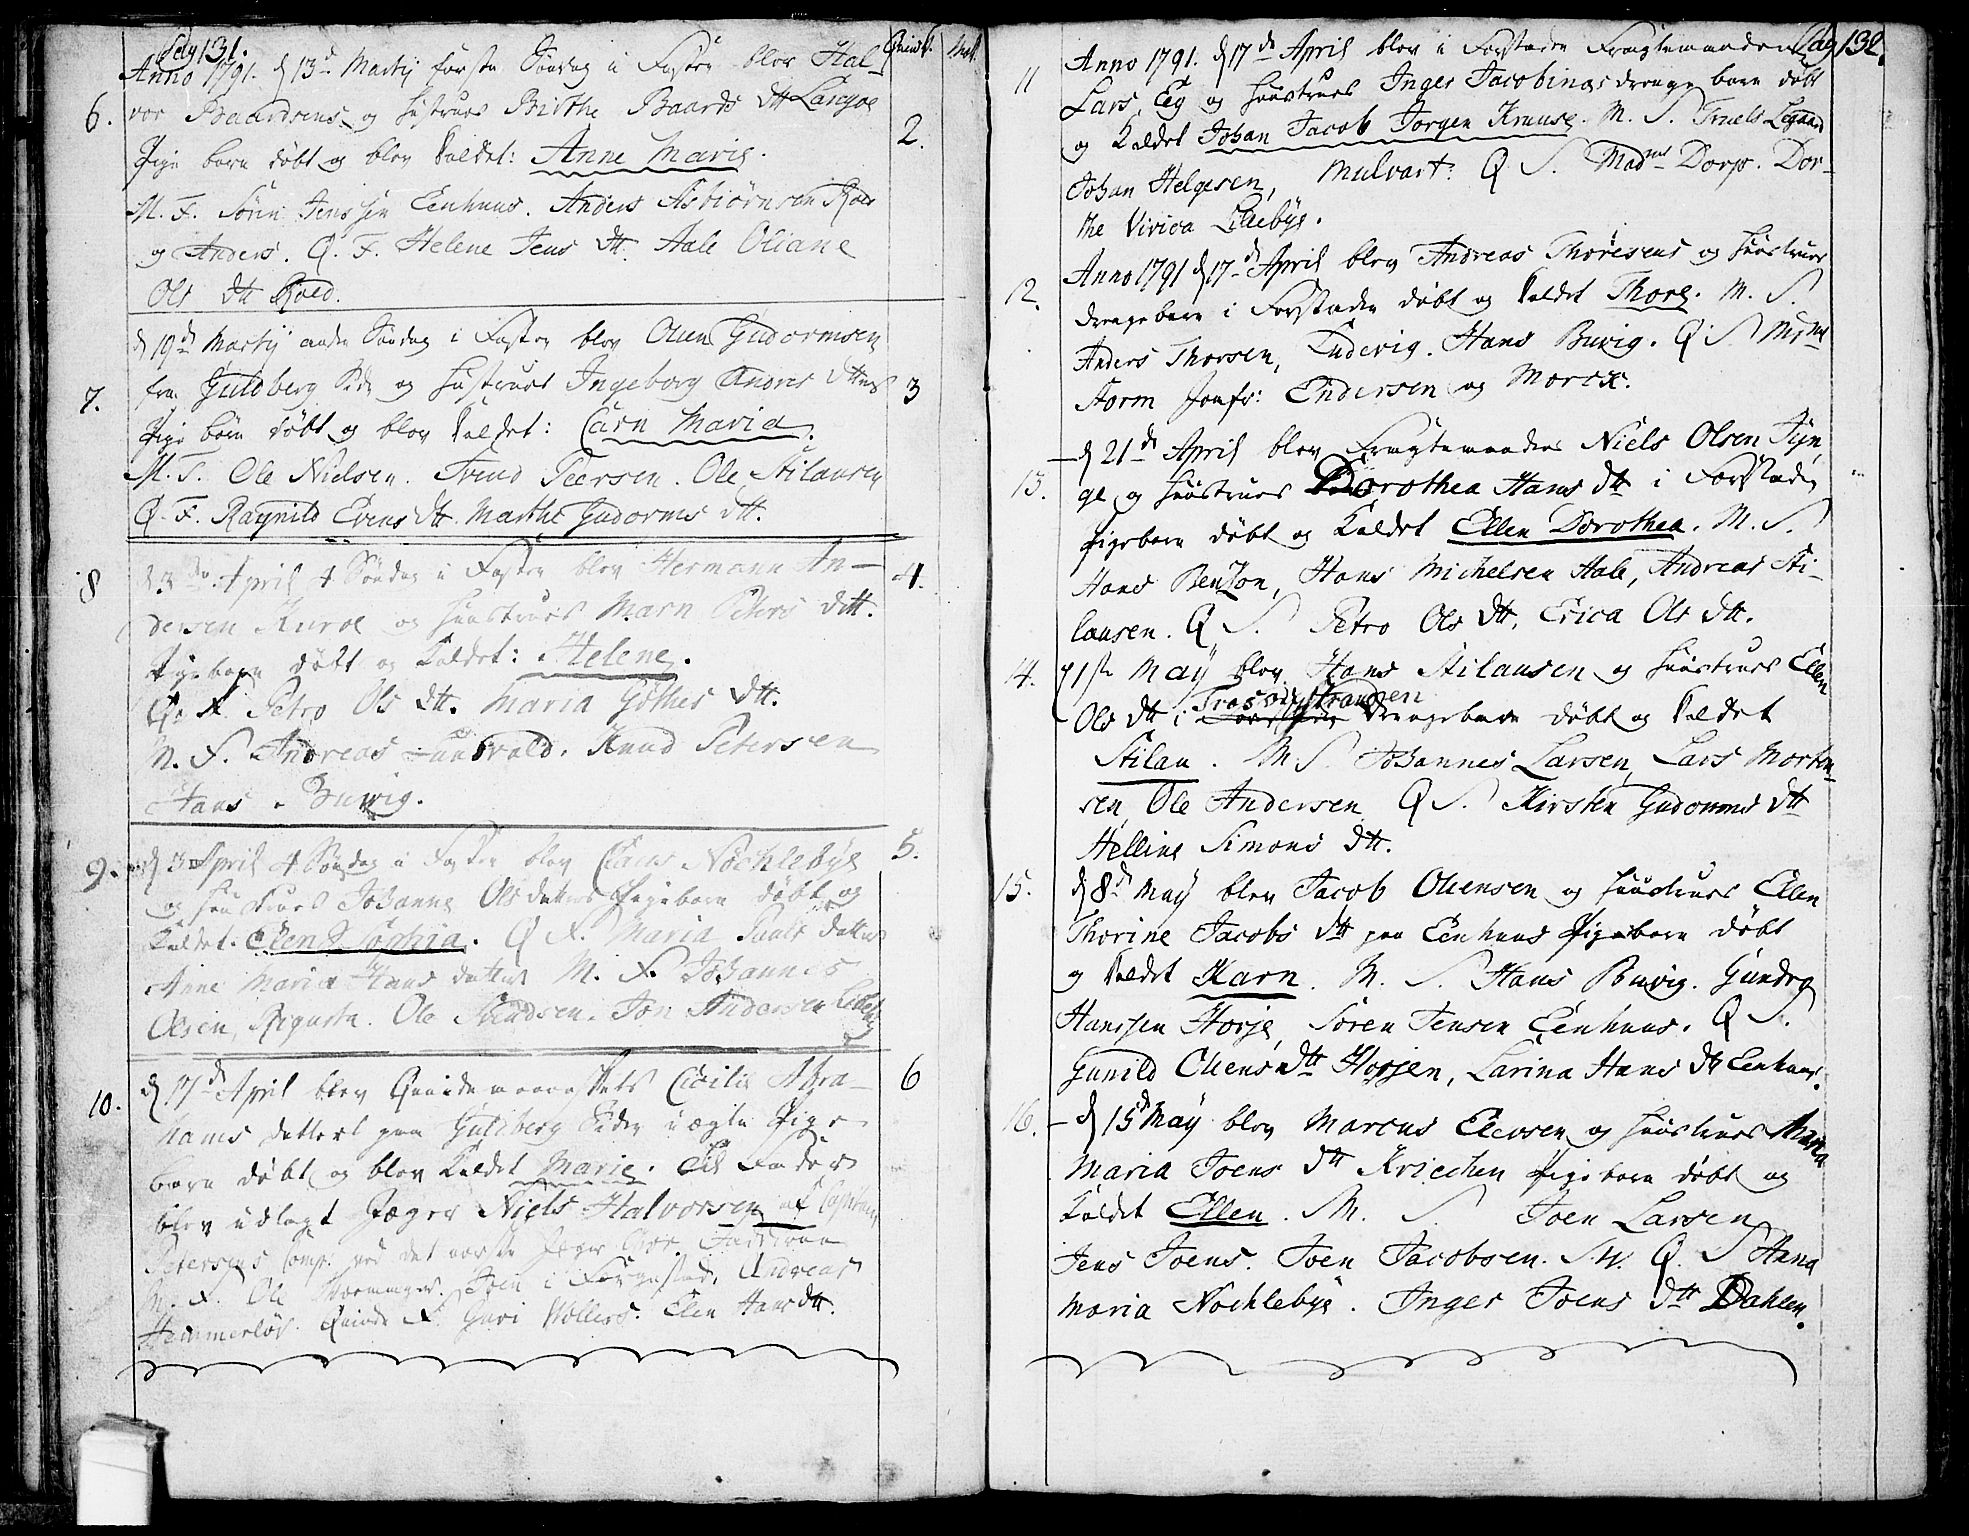 Pag 131.
Qvindk. Mk.
Anno 1791. d 13d Martij første Søndag i Faste blev Hal-
6. vor Baardsens og Hustrues Birthe Baards dtt Langøe 2.
Pige barn døbt og blev kaldet: Anne Marie.
M. F. Sören Jenssen Eenhuus. Anders Asbiörnsen Roed
og Anders. Q. F. Helene Jens dtt. Aale Oliane
Ols dtt Roed.
d 19de Martij anden Søndag i Faste blev Oluen Gudormsen
7. fra Guldberg Side og Hustrues Ingeborg Andres dtters 3
Pige barn døbt og blev kaldet: Carn Maria.
M. F. Ole Nielsen. Svend Peersen. Ole Stilausen
Q. F. Ragnild Evens dtt. Marthe Gudorms dtt.
8 d 3de April 4 Søndag i Faste blev Hermann An- 4.
dersen Kuroe og Huustrues Marn Peters dtt.
Pige barn døbt og kaldet: Helene.
Qv. F. Petro Ols dtt. Maria Göthes dtt.
M. F. Andreas Knud Petersen
Hans Buvig.
9. d 3 April 4 Søndag i Faste blev Claus Nöchlebÿe 5.
og Huustrues Johanne Ols datters Pigebarn døbt og
kaldet. Elen Sophia. Q F. Maria Pauls datter
Anne Maria Hans datter M. F. Johannes
Olsen, Ole Knudsen. Jon Andersen Lilleby
10. d 17d April blev Qvindemennesket Cicilie Abra- 6
hams datters paa Guldberg Siden uægte Pige
barn døbt og blev kaldet Marie. Til Fader
blev udlagt Jæger Niels Halvorsen af Capitain
Petersens Comp. ved det norske Jæger Faddere
M. F. Ole Joen i Andreas
Hemmerlöv. Qvinde F. Guri Wollers. Elen Hans dtt.
Pag 132.
Anno 1791. d 17de April blev i Forstaden Fragtemanden
11 Lars Eeg og Huustrues Inger Jacobinas drenge barn døbt
og kaldet Johan Jacob Jorgen Krause. M. S. Truels Legaard
Johan Helgesen, Mulvart: Q S. Madme Dorp. Dor-
the Virica Lillebÿe.
Anno 1791 d 17de April blev Andreas Thoresens og Huustrues
12. drengebarn i Forstaden døbt og kaldet Thore. M. S.
Anders Thorsen, Ludevig. Hans Buvig. Q S.
Storm Jomfr: Endersen og Morck.
d 21de April blev Fragtemanden Niels Olsen Tÿn
13. ge og Huustrues Dorothea Hans dtt i Forstaden
Pigebarn døbt og kaldet Ellen Dorothea. M. S.
Hans Benzon, Hans Michelsen Aale, Andreas Sti-
lausen. Q S. Petro Ols dtt, Erica Ols dtt.
14. d 1ste Maÿ blev Hans Stilausen og Huustrues Ellen
Ols dtt i Trosvigstranden drengebarn døbt og kaldet
Stilau. M. S. Johannes Larsen, Lars Morten-
sen, Ole Andersen Q S. Kirsten Gudorms dtt
Helline Simons dtt.
15. d 8d Maÿ blev Jacob Oluensen og Huustrues Ellen
Thorine Jacobs dtt paa Eenhuus Pigebarn døbt
og kaldet Karn. M. S. Hans Buvig. Gundro
Hanssen Horje, Soren Jensen Eenhuus. Q S.
Gunild Oluens dtt Horjen, Larina Hans dtt Eenhuus.
16. d 15d Maÿ blev Marcus Elevsen og Huustrues Anna
Maria Joens dtt Kriechen Pige barn døbt og
kaldet Ellen. M. S. Joen Larsen
Jens Joens. Joen Jacobsen. Q. S Anna
Maria Nöchlebÿe. Inger Joens dtt Dahlen.